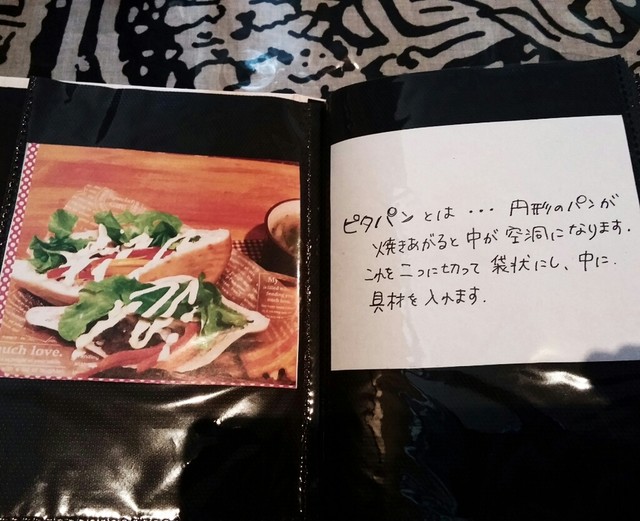 uch love.
My
ピタパンとは・・・円形のパンが
焼きあがると中が空洞になります.
これを二つに切って袋状にし、中に.
具材を入れます.